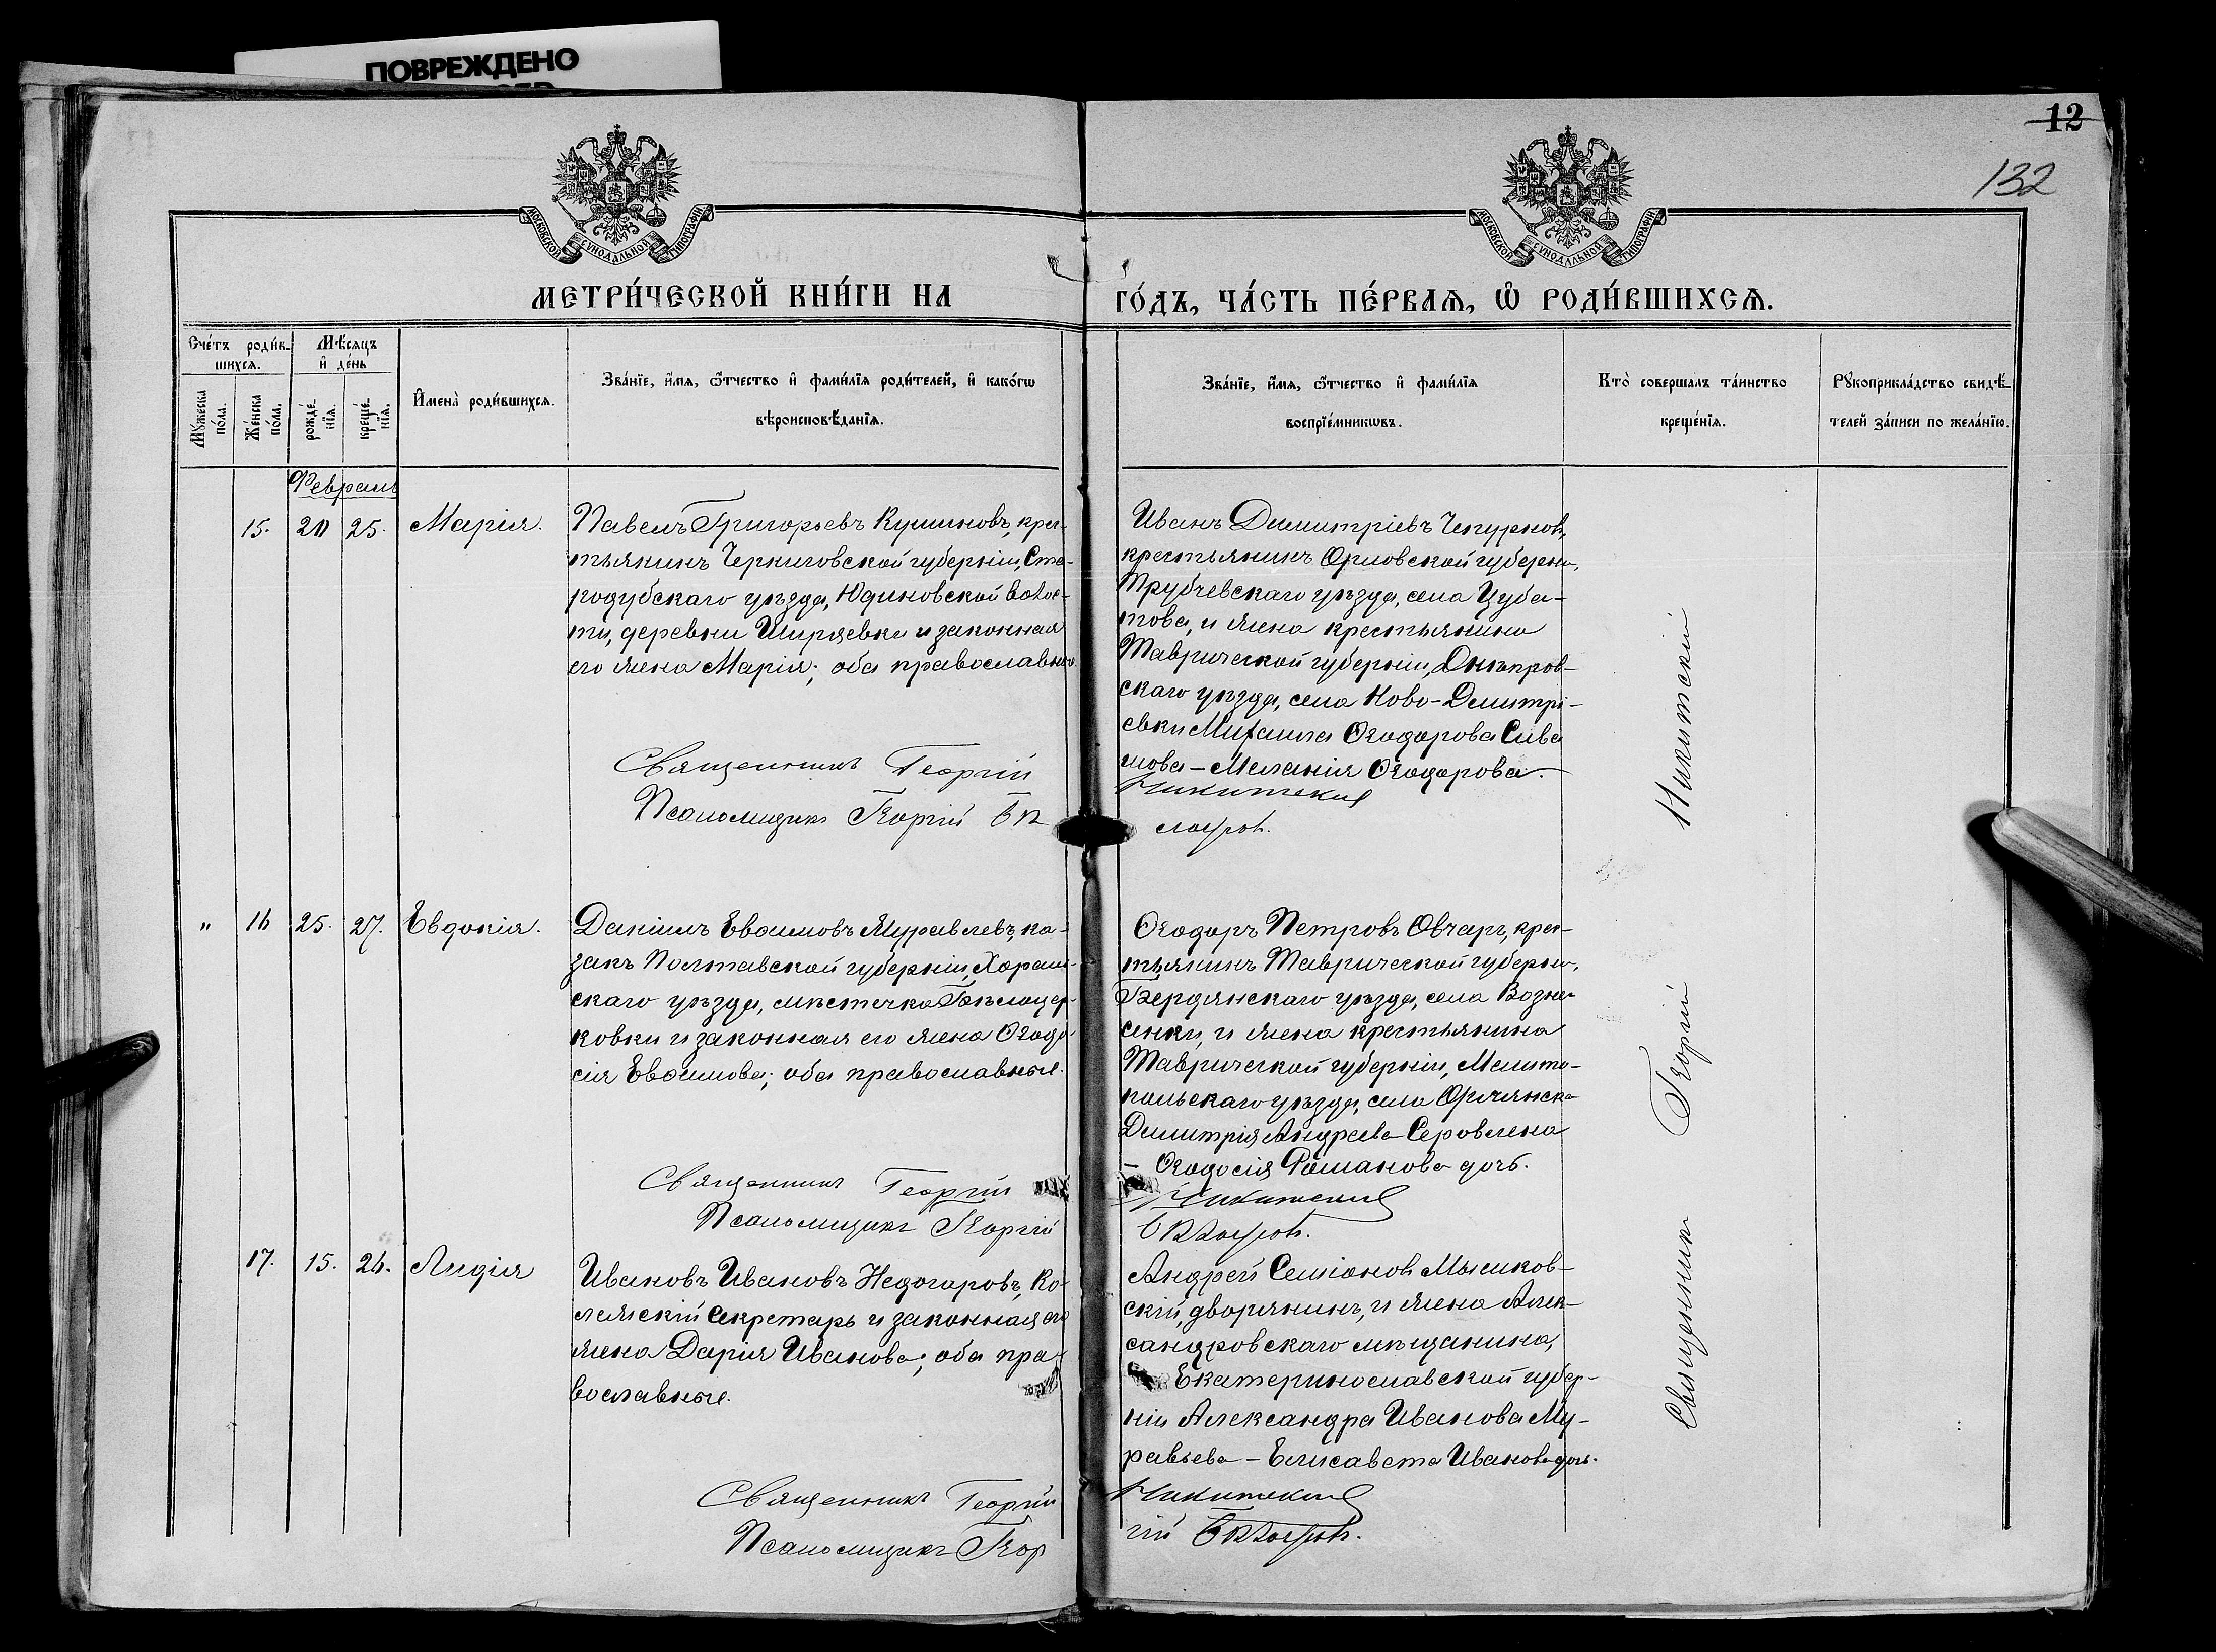 ПОВРЕЖДЕНО
12
132
МОСКОВСКОЙ СУНОДАЛЬНОЙ ТИПОГРАФІИ
МОСКОВСКОЙ СУНОДАЛЬНОЙ ТИПОГРАФІИ
МЕТРИ́ЧЕСКОЙ КНИ́ГИ НА
ГО́ДЪ, ЧА́СТЬ ПЕ́РВАѦ, Ѽ РОДИ́ВШИХСѦ.
Сче́тъ роди́в-
шихсѧ.
Мѣ́сѧцъ
и҆ де́нь
Мꙋ́жеска по́ла.
Же́нска по́ла.
рожде́-нїѧ.
креще́-нїѧ.
И҆мена̀ роди́вшихсѧ.
Зва́нїе, и҆́мѧ, ѻ҆́тчество и҆ фами́лїѧ роди́телей, и҆ како́гѡ
вѣроисповѣ́данїѧ.
Зва́нїе, и҆́мѧ, ѻ҆́тчество и҆ фами́лїѧ
воспрїе́мникѡвъ.
Кто̀ соверша́лъ та́инство
креще́нїѧ.
Рꙋкоприкла́дство свидѣ́-
телей за́писи по жела́нїю.
Февраль
15. 20 25. Марія.
Павелъ Григорьевъ Кушновъ, крес-
тьянинъ Черниговской губерніи, Ста-
родубскаго уѣзда, Юдиновской волос-
ти, деревни Ширяевки и законная
его жена Марія; оба православные.
Священникъ Георгій
Псаломщикъ Георгій
Иванъ Димитріевъ Чепурновъ,
крестьянинъ Орловской губерніи,
Трубчевскаго уѣзда, села Зуба-
това, и жена крестьянина
Таврической губерніи, Днѣпров-
скаго уѣзда, села Ново-Димитрі-
евки Михаила Ѳеодорова Сива
шова - Меланія Ѳеодорова.
Никитскій
" 16 25. 27. Евдокія.
Даніилъ Евѳимовъ Журавлевъ, ка-
закъ Полтавской губерніи, Хороль-
скаго уѣзда, мѣстечка Бѣлоцер-
ковки и законная его жена Ѳеодо-
сія Евѳимова; оба православные.
Священникъ Георгій
Псаломщикъ Георгій
Ѳеодоръ Петровъ Овчаръ, крес-
тьянинъ Таврической губерніи,
Бердянскаго уѣзда, села Возне-
сенки, и жена крестьянина
Таврической губерніи, Мелито-
польскаго уѣзда, села Орлянска
Димитрія Андреева
- Ѳеодосія Романова дочь.
Никитскій
17. 15. 24. Лидія
Ивановъ Ивановъ Недогаровъ, Ко-
лежскій Секретарь и законная его
жена Дарія Иванова; оба пра-
вославные.
Священникъ Георгій
Псаломщикъ Геор
Андрей Семіоновъ Мысиков-
скій, дворянинъ, и жена Алек-
сандровскаго мѣщанина,
Екатеринославской губер-
ніи Александра Иванова Му-
равьева - Елисавета Иванова дочь.
Никитскій
гій
Священникъ Георгій Никитскій